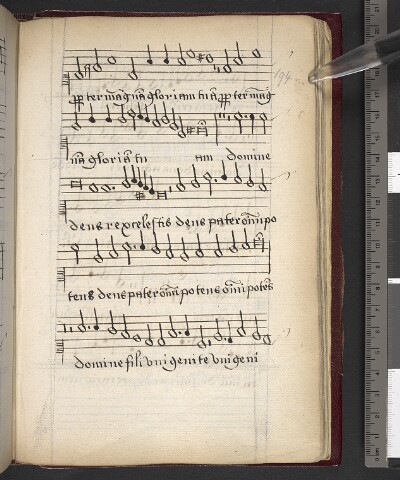 ppter magnã gloriam tuã ppter mag
194
nã gloriã tu am domine
deus rex celestis deus pater omĩpo
tens deus pater omĩpotens omĩpotẽs
domine fili vnigenite vnigeni